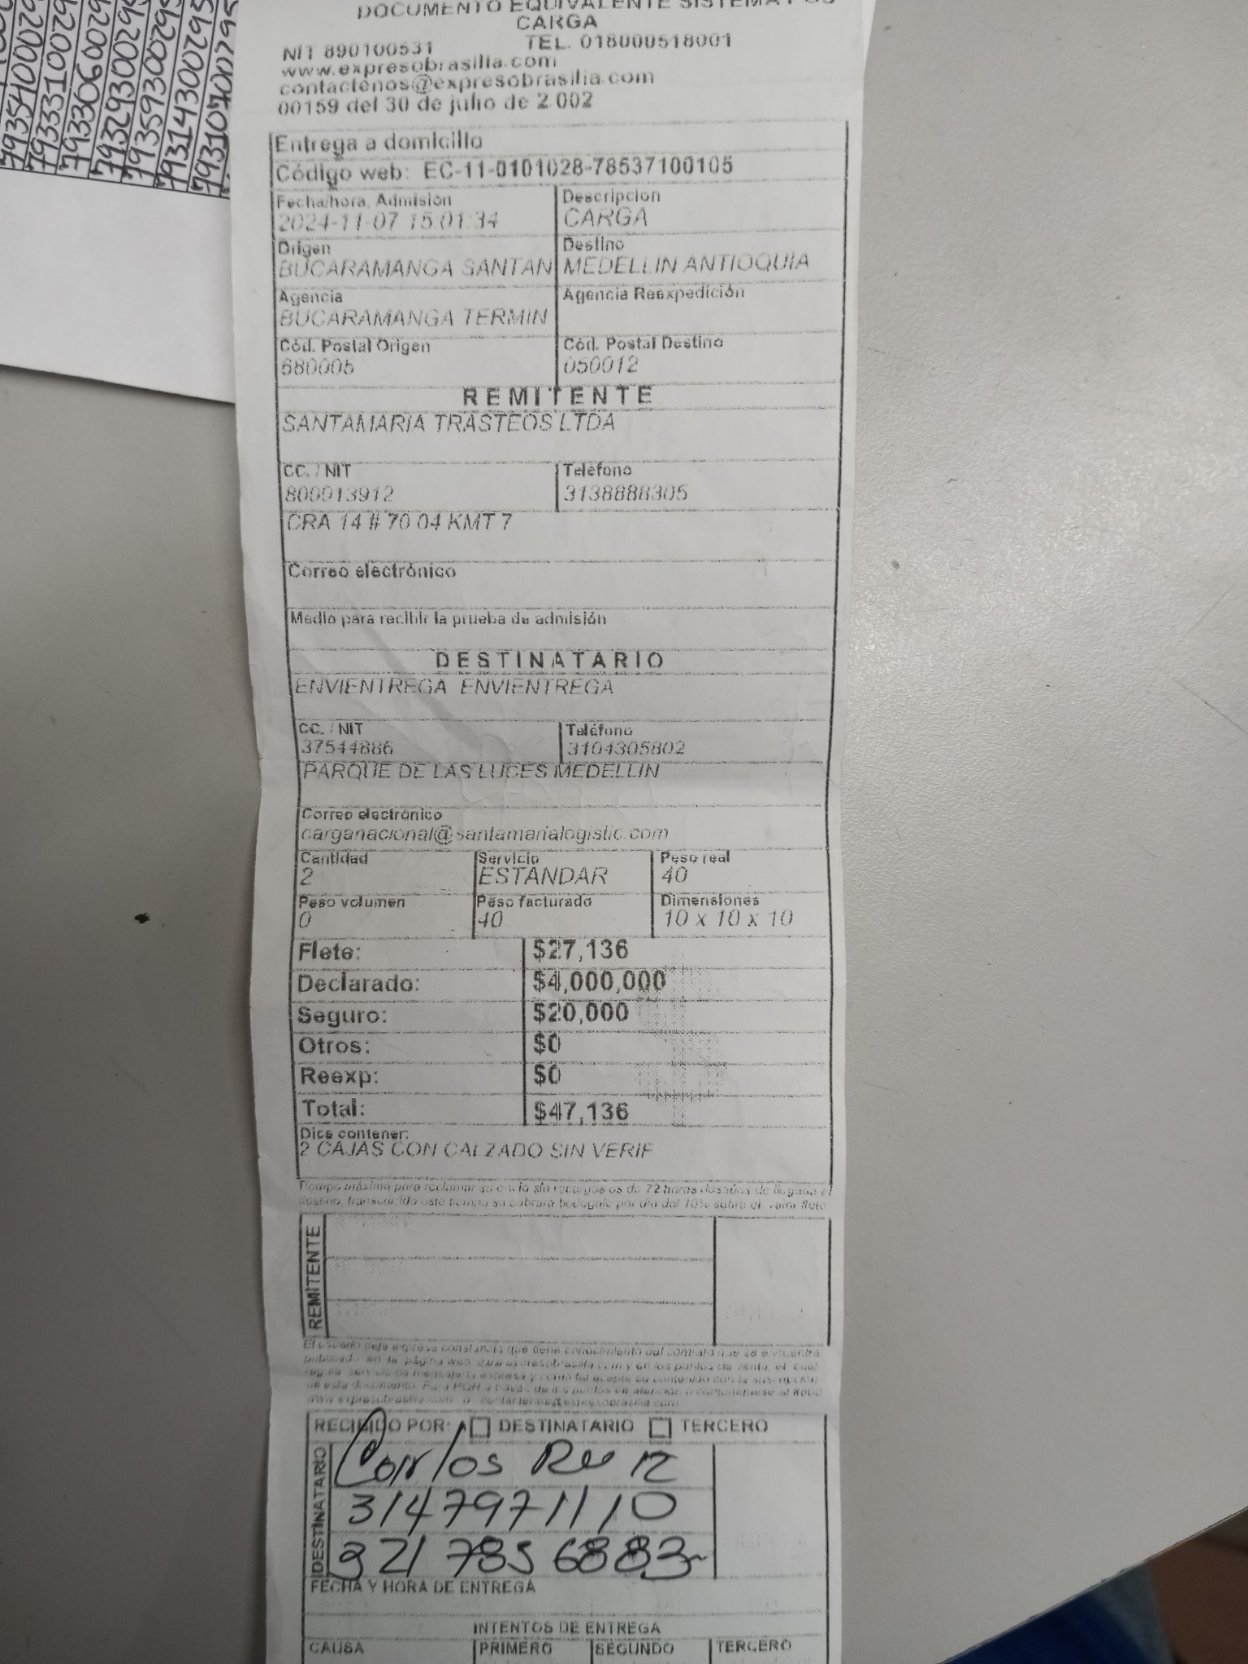 7935400029
7933310029
7933060029
79329300295
79359300295
79314300295
79310700295
DOCUMENTO EQUIVALENTE SISTEMA POS
CARGA
NIT 890100531 TEL. 018000518001
www.expresobrasilia.com
contactenos@expresobrasilia.com
00159 del 30 de julio de 2.002
Entrega a domicilio
Código web: EC-11-0101028-78537100105
Fecha/hora, Admisión Descripcion
2024-11-07 15:01:34 CARGA
Origen Destino
BUCARAMANGA SANTAN MEDELLIN ANTIOQUIA
Agencia Agencia Reexpedición
BUCARAMANGA TERMIN
Cód. Postal Origen Cód. Postal Destino
680005 050012
REMITENTE
SANTAMARIA TRASTEOS LTDA
CC. / NIT Teléfono
800013912 3138888305
CRA 14 # 70 04 KMT 7
Correo electrónico
Medio para recibir la prueba de admisión
DESTINATARIO
ENVIENTREGA ENVIENTREGA
CC. / NIT Teléfono
37544886 3104305802
PARQUE DE LAS LUCES MEDELLIN
Correo electrónico
carganacional@santamarialogistic.com
Cantidad Servicio Peso real
2 ESTANDAR 40
Peso volumen Peso facturado Dimensiones
0 40 10 x 10 x 10
Flete: $27,136
Declarado: $4,000,000
Seguro: $20,000
Otros: $0
Reexp: $0
Total: $47,136
Dice contener:
2 CAJAS CON CALZADO SIN VERIF
Tiempo máximo para reclamar su envío sin recargos es de 72 horas después de llegar al
destino, transcurrido este tiempo se cobrará bodegaje por día del 10% sobre el valor flete
REMITENTE
El usuario deja expresa constancia que tiene conocimiento del contrato que se encuentra
publicado en la página web www.expresobrasilia.com y en los puntos de venta, el cual
regula
de este documento. Para PQR a través de los puntos de atención o comuníquese al
www.expresobrasilia.com o contactenos@expresobrasilia.com
RECIBIDO POR: DESTINATARIO TERCERO
DESTINATARIO
Carlos Ruiz
3147971110
321 785 6883
FECHA Y HORA DE ENTREGA
INTENTOS DE ENTREGA
CAUSA PRIMERO SEGUNDO TERCERO